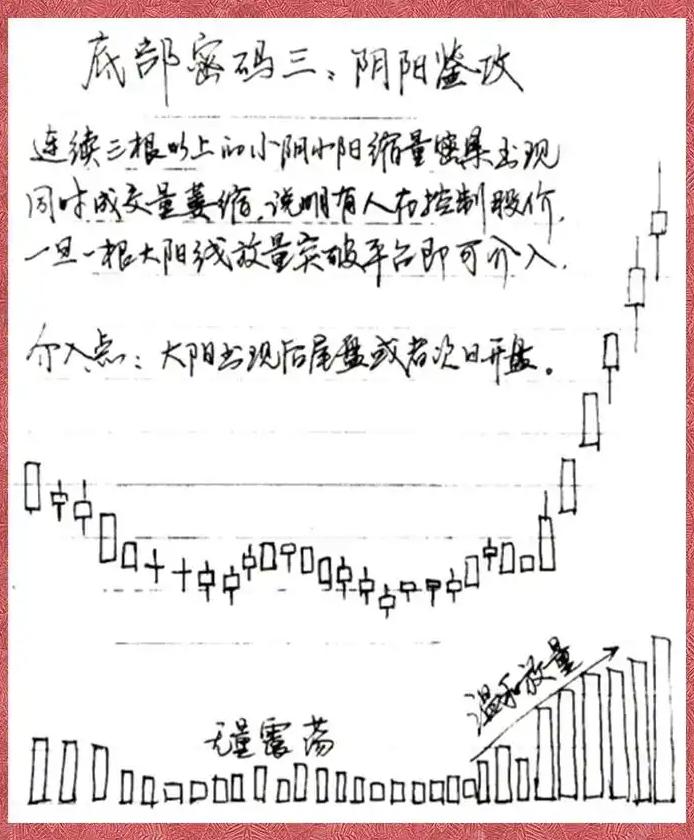 底部密码三：阴阳鉴攻
连续三根以上的小阴小阳缩量密集出现
同时成交量萎缩，说明有人在控制股价，
一旦一根大阳线放量突破平台即可介入．
介入点：大阳出现后尾盘或者次日开盘。
温和放量
无量震荡